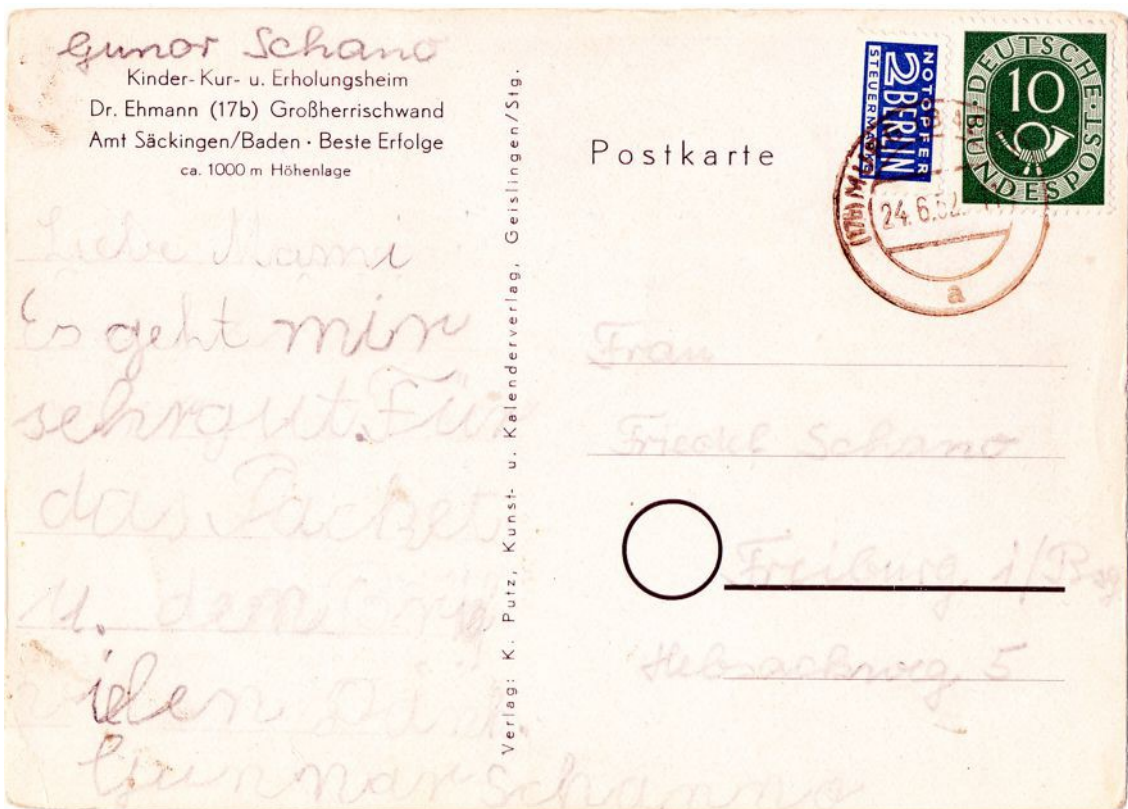 Gunor Schano
Kinder-Kur- u. Erholungsheim
Dr. Ehmann (17b) Großherrischwand
Amt Säckingen/Baden · Beste Erfolge
ca. 1000 m Höhenlage
Liebe Mami
Es geht mir
sehr gut. Für
das Packet
u. dem
vielen
Gunnar Schanno
Verlag: K. Putz, Kunst- u. Kalenderverlag, Geislingen/Stg.
Postkarte
NOTOPFER
2 BERLIN
STEUERMARKE
DEUTSCHE
10
BUNDESPOST
24.6.52
a
Frau
Friedel Schano
Freiburg i/Brsg
5